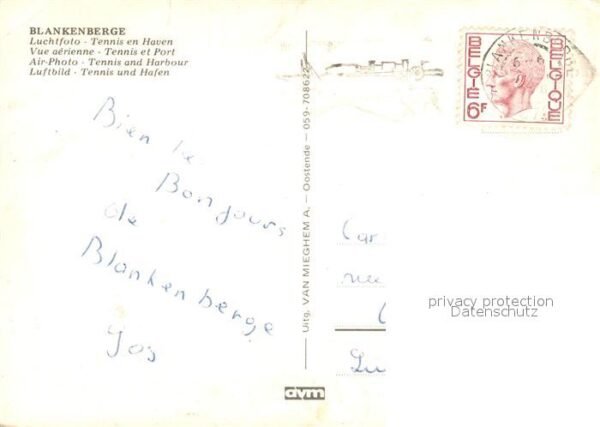 BLANKENBERGE
Luchtfoto - Tennis en Haven
Vue aérienne - Tennis et Port
Air-Photo - Tennis and Harbour
Luftbild - Tennis und Hafen
BLANKENBERGE
6
BELGIE 6F
BELGIQUE
Bien le
Bonjours
de
Blankenberge
Uitg. VAN MIEGHEM A. - Oostende - 059-708622
Car
rue
privacy protection
Datenschutz
avm